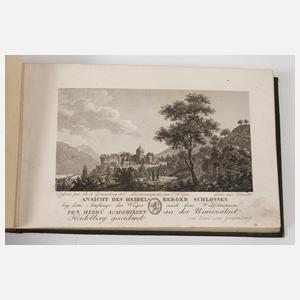 ANSICHT DES HEIDEL- BERGER SCHLOSSES
bey dem Anfange des Weges nach dem Wolfsbrunnen
DEN HERRN ACADEMIKERN an der Universität
Heidelberg gewidmet von Carl von Graimberg